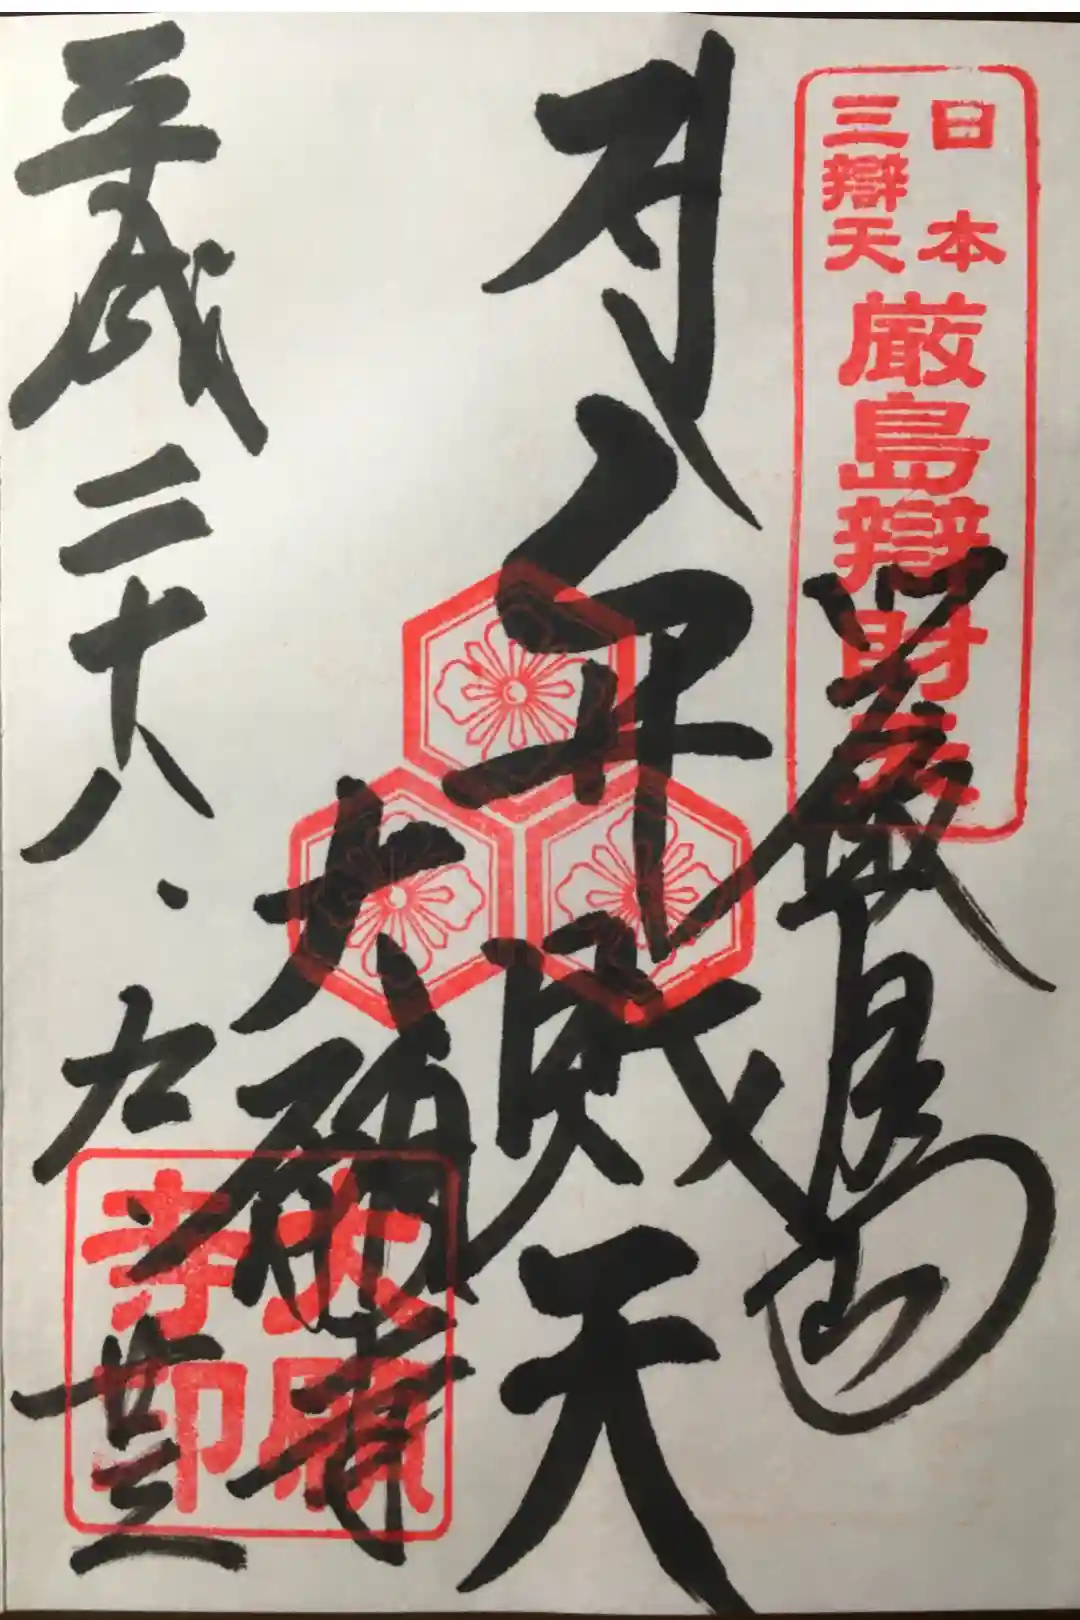 日本
三辯天
厳島辯財天
厳島
弁財天
大願寺
平成二十八.九.廿三
大願
寺印